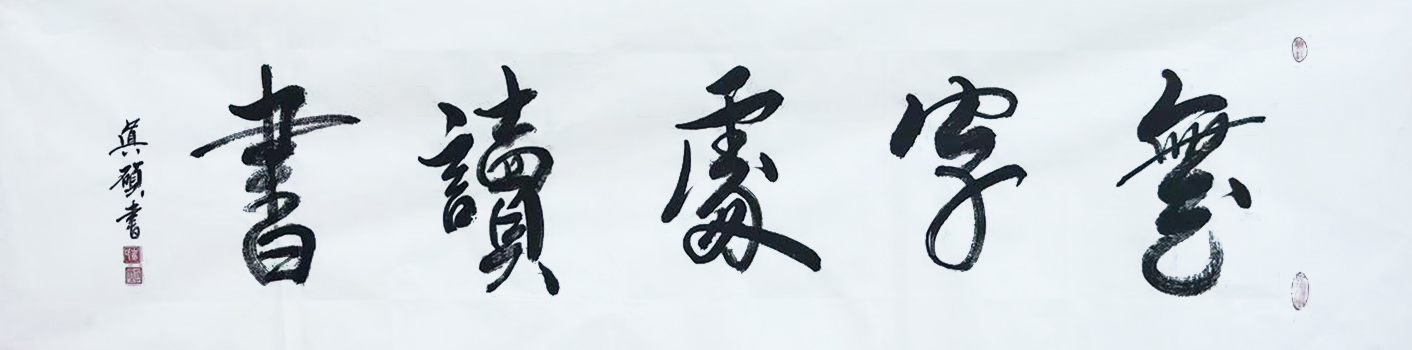 無字處讀書
真碩書